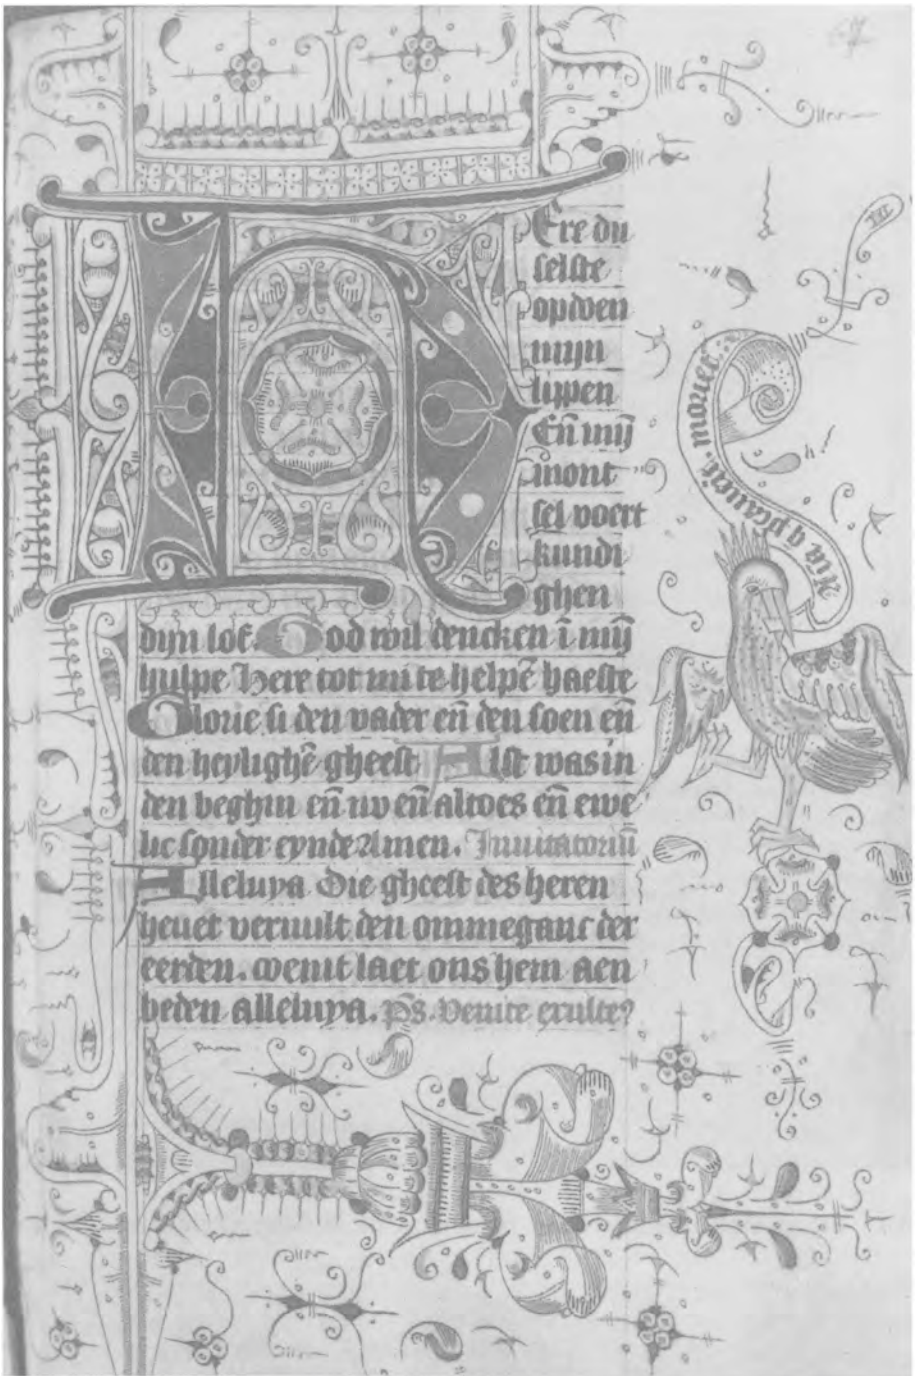 HEre du
selste
opdoen
mijn
lippen
Eñ mij̄
mont
sel voert
kundi
ghen
dijn lof. God wil dencken ī mij̄
hulpe Here tot mi te helpē haeste
Glorie si den vader eñ den soen eñ
den heylighē gheest Alst was in
den beghin eñ nv eñ altoes eñ ewe
lic sonder eynde Amen. Inuitatoriū
Alleluya Die gheest des heren
heuet veruult den ommeganc der
eerden. coemt laet ons hem aen
beden alleluya. Ps. Venite exulte
Aīa q̄ pcauerit. moriet